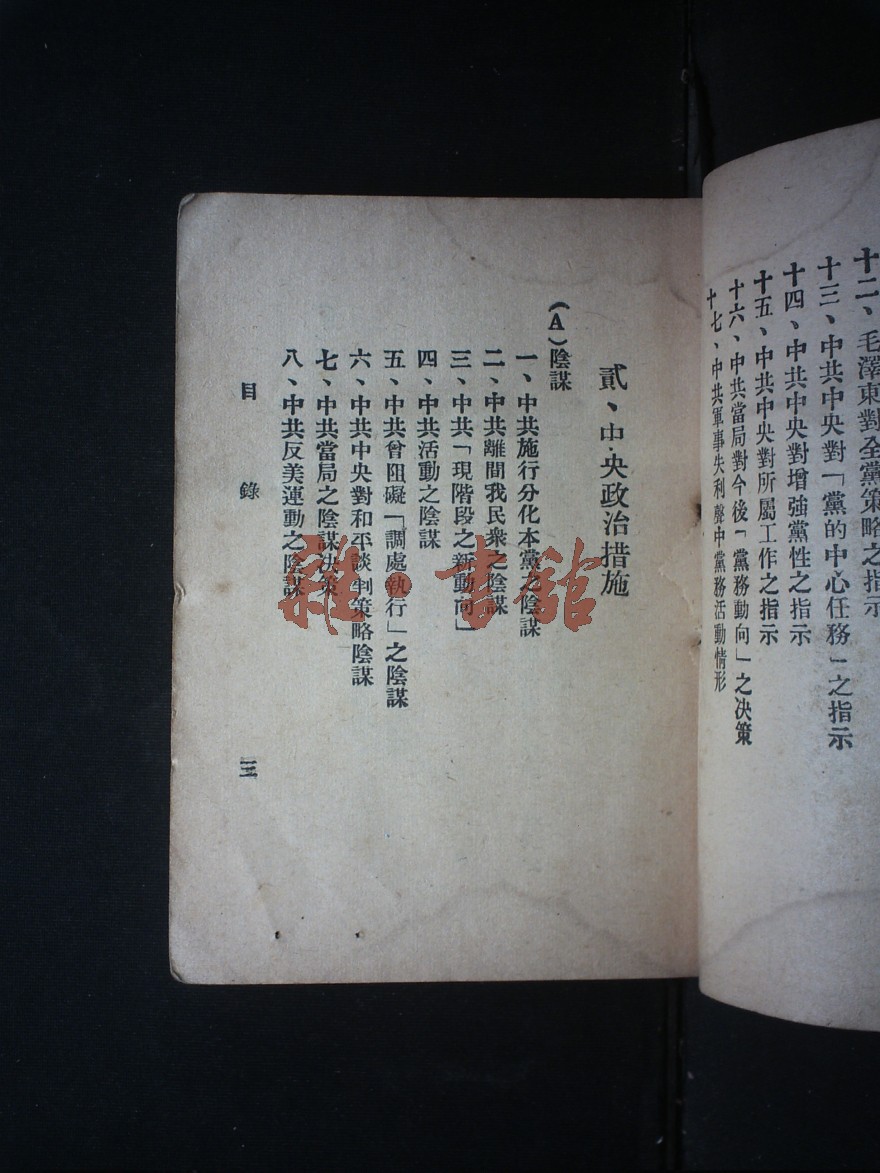 十二、毛澤東對全黨策略之指示
十三、中共中央對「黨的中心任務」之指示
十四、中共中央對增強黨性之指示
十五、中共中央對所屬工作之指示
十六、中共當局對今後「黨務動向」之决策
十七、中共軍事失利聲中黨務活動情形
貳、中央政治措施
(A)陰謀
一、中共施行分化本黨之陰謀
二、中共離間我民衆之陰謀
三、中共「現階段之新動向」
四、中共活動之陰謀
五、中共曾阻礙「調處執行」之陰謀
六、中共中央對和平談判策略陰謀
七、中共當局之陰謀决策
八、中共反美運動之陰謀
目錄
三
雜·書館